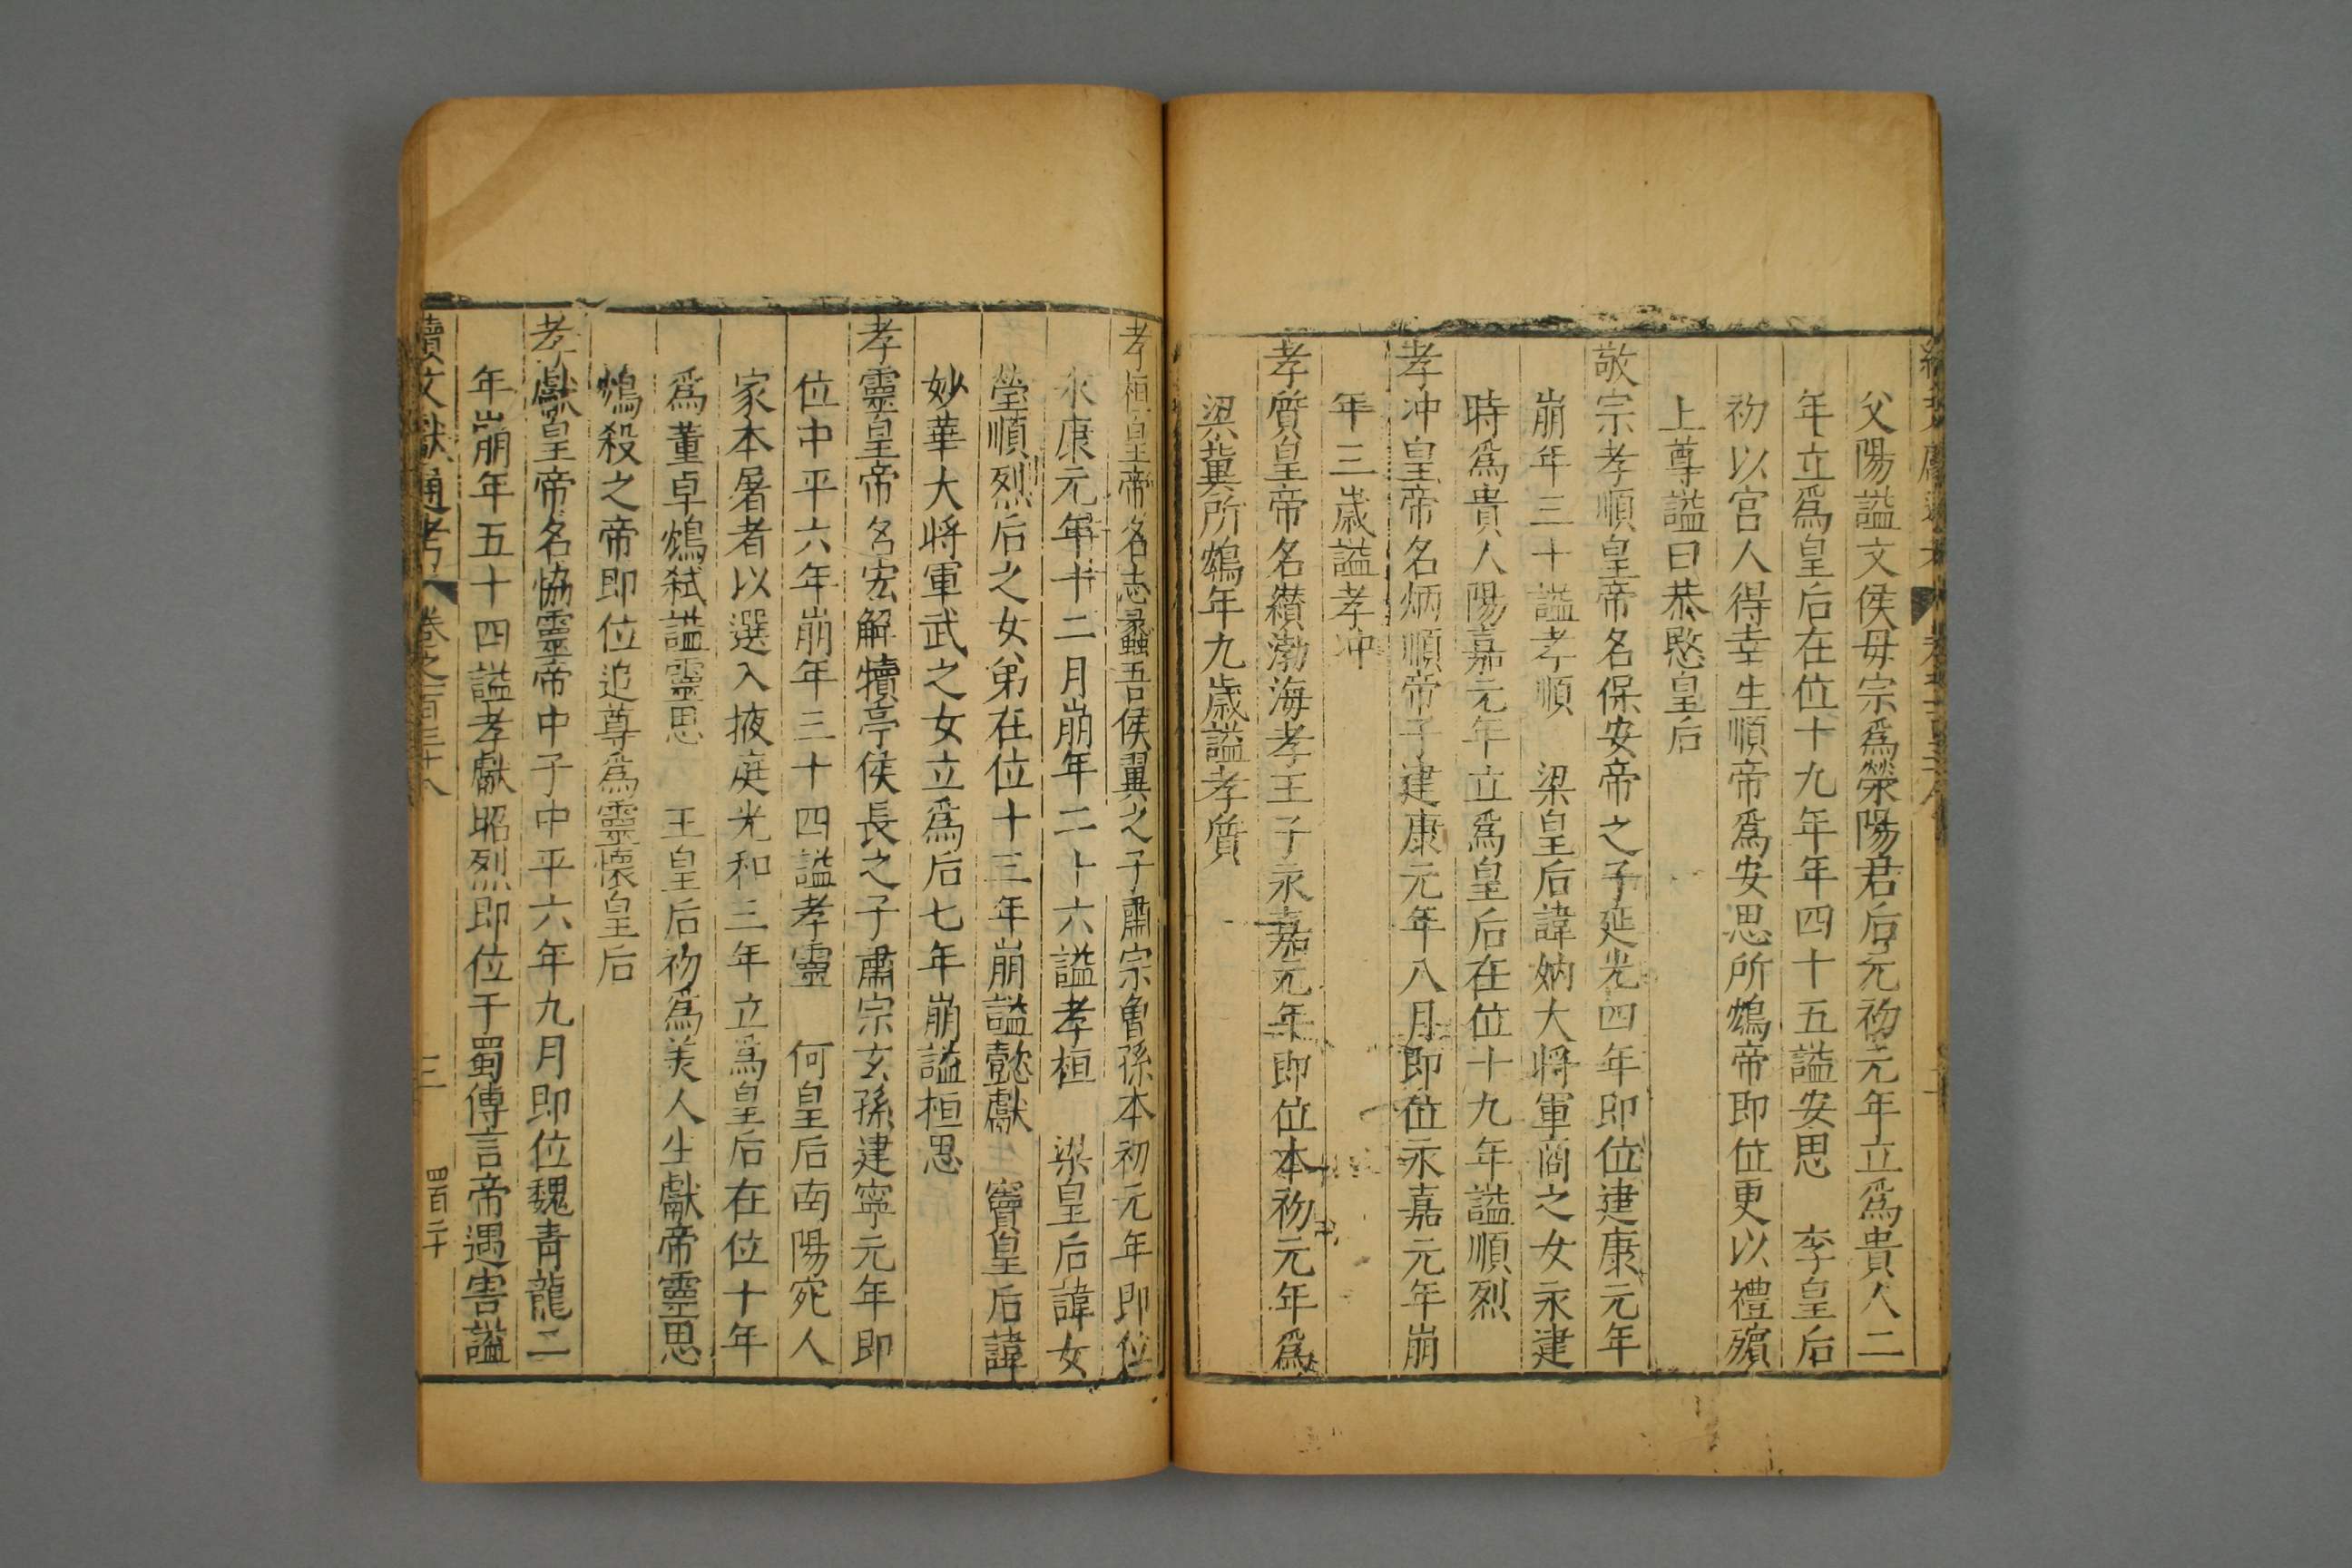 父陽謚文侯母宗爲滎陽君后元初元年立爲貴人二
年立爲皇后在位十九年年四十五謚安思　李皇后
初以宮人得幸生順帝爲安思所鴆帝即位更以禮殯
上尊謚曰恭愍皇后
敬宗孝順皇帝名保安帝之子延光四年即位建康元年
崩年三十謚孝順　梁皇后諱妠大將軍商之女永建
時爲貴人陽嘉元年立爲皇后在位十九年謚順烈
孝冲皇帝名炳順帝子建康元年八月即位永嘉元年崩
年三歲謚孝冲
孝質皇帝名纘渤海孝王子永嘉元年即位本初元年爲
梁冀所鴆年九歲謚孝質
孝桓皇帝名志蠡吾侯翼之子肅宗曾孫本初元年即位
永康元年十二月崩年二十六謚孝桓　梁皇后諱女
瑩順烈后之女弟在位十三年崩謚懿獻　竇皇后諱
妙華大將軍武之女立爲后七年崩謚桓思
孝靈皇帝名宏解犢亭侯長之子肅宗玄孫建寧元年即
位中平六年崩年三十四謚孝靈　何皇后南陽宛人
家本屠者以選入掖庭光和三年立爲皇后在位十年
爲董卓鴆弒謚靈思　王皇后初爲美人生獻帝靈思
鴆殺之帝即位追尊爲靈懷皇后
孝獻皇帝名協靈帝中子中平六年九月即位魏青龍二
年崩年五十四謚孝獻昭烈即位于蜀傳言帝遇害謚
續文獻通考　卷之一百三十八　三　四百二十